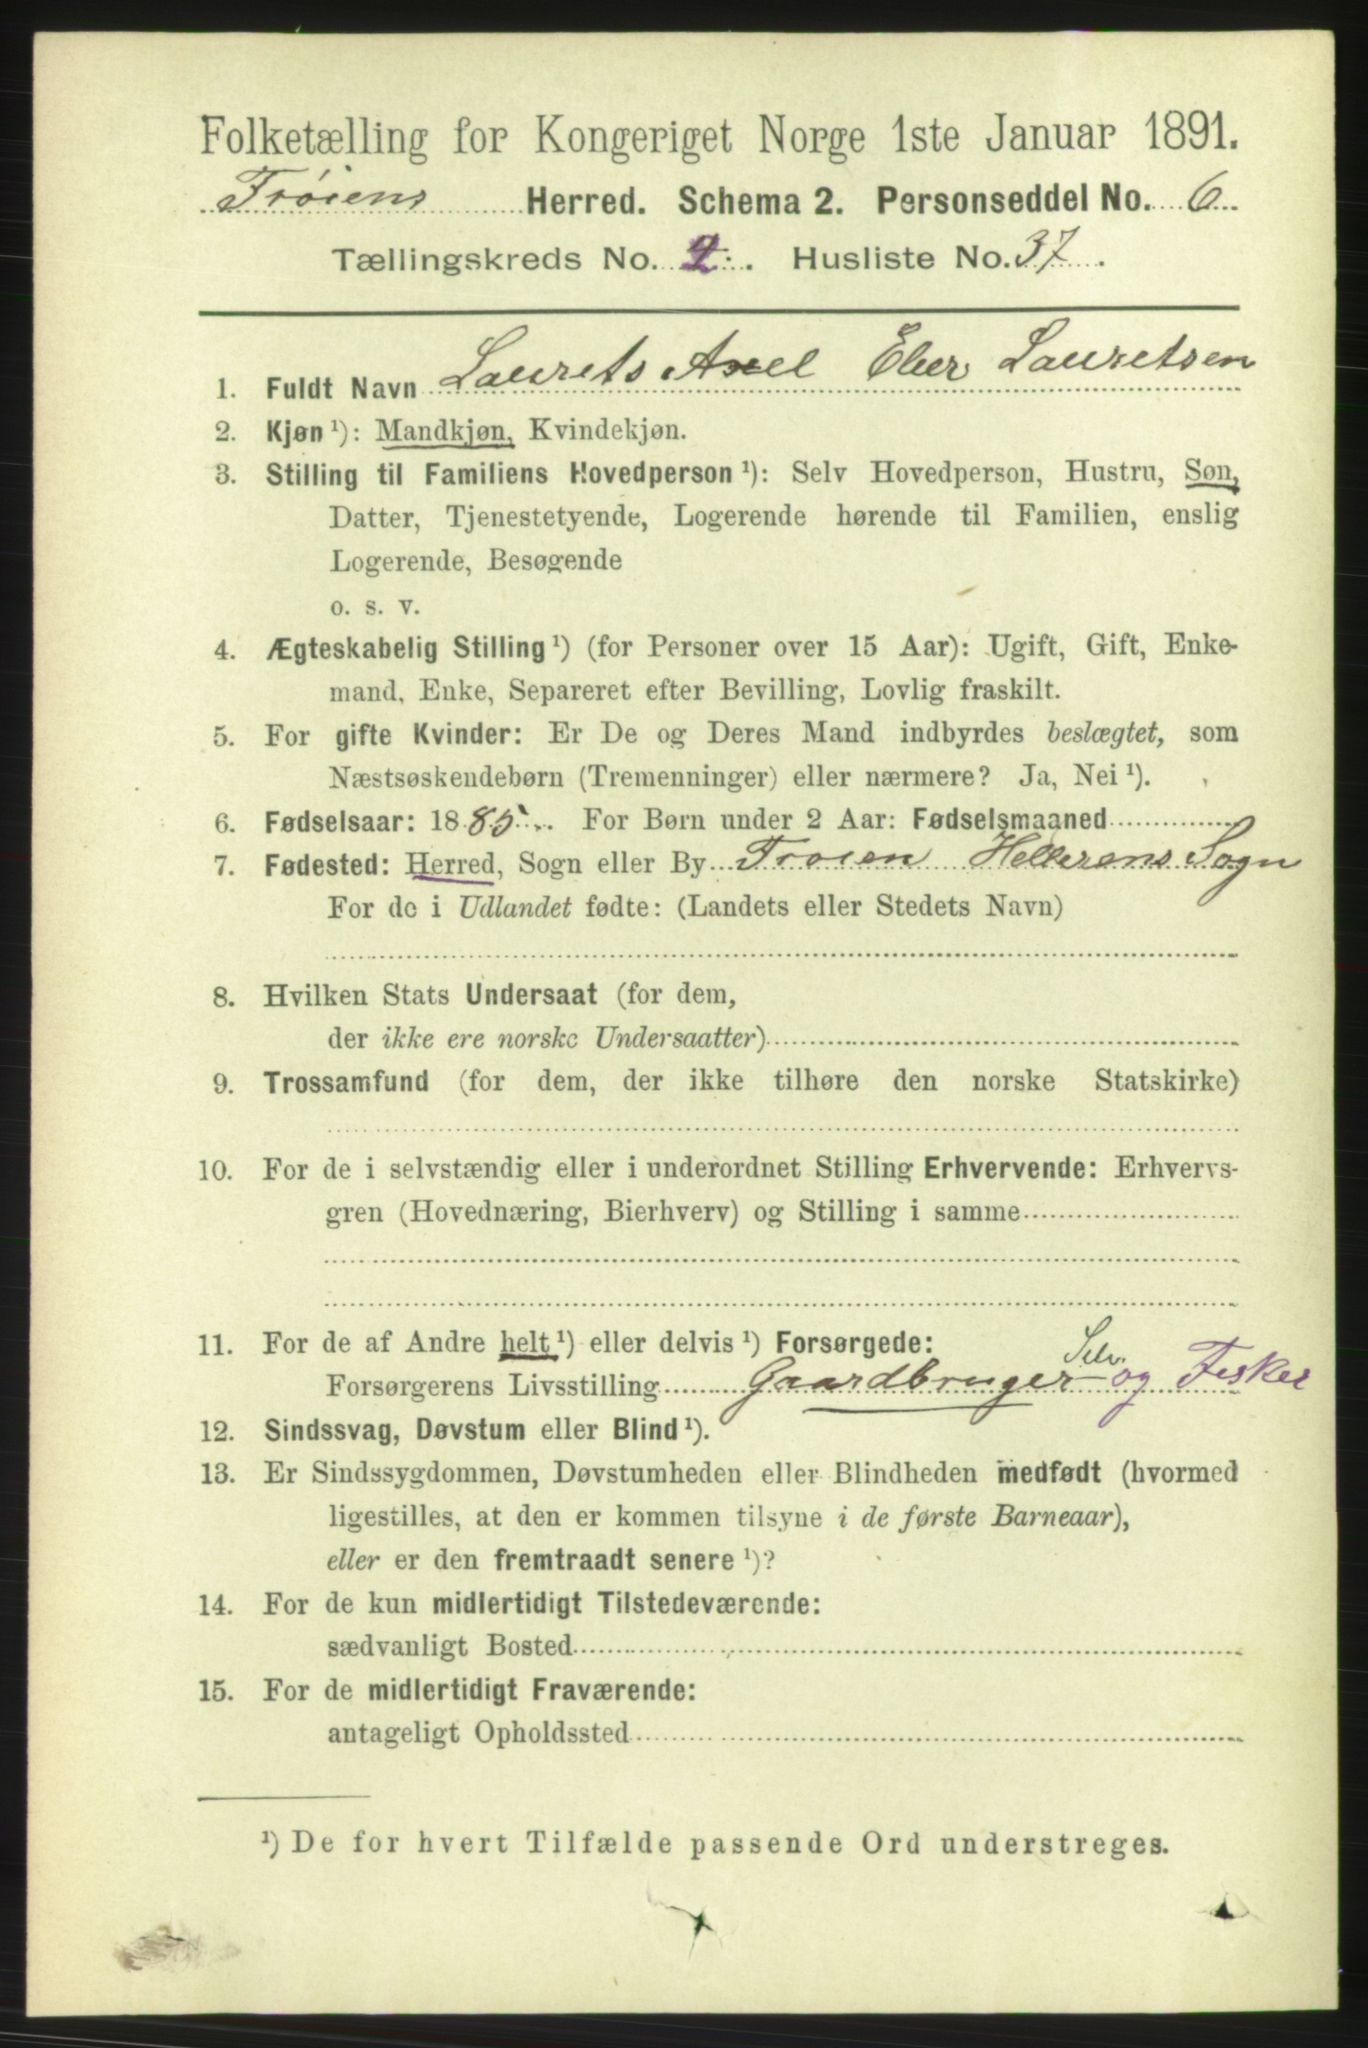 Folketælling for Kongeriget Norge 1ste Januar 1891.
Frøiens Herred. Schema 2. Personseddel No. 6
Tællingskreds No. 2. Husliste No. 37.
1. Fuldt Navn Laurets Axel Lauretsen
2. Kjøn ¹): Mandkjøn, Kvindekjøn.
3. Stilling til Familiens Hovedperson ¹): Selv Hovedperson, Hustru, Søn,
Datter, Tjenestetyende, Logerende hørende til Familien, enslig
Logerende, Besøgende
o. s. v.
4. Ægteskabelig Stilling ¹) (for Personer over 15 Aar): Ugift, Gift, Enke-
mand, Enke, Separeret efter Bevilling, Lovlig fraskilt.
5. For gifte Kvinder: Er De og Deres Mand indbyrdes beslægtet, som
Næstsøskendebørn (Tremenninger) eller nærmere? Ja, Nei ¹).
6. Fødselsaar: 1885. For Børn under 2 Aar: Fødselsmaaned
7. Fødested: Herred, Sogn eller By Froien Hellerens Sogn
For de i Udlandet fødte: (Landets eller Stedets Navn)
8. Hvilken Stats Undersaat (for dem,
der ikke ere norske Undersaatter)
9. Trossamfund (for dem, der ikke tilhøre den norske Statskirke)
10. For de i selvstændig eller i underordnet Stilling Erhvervende: Erhvervs-
gren (Hovednæring, Bierhverv) og Stilling i samme
11. For de af Andre helt ¹) eller delvis ¹) Forsørgede:
Forsørgerens Livsstilling Gaardbruger Selv. og Fisker
12. Sindssvag, Døvstum eller Blind ¹).
13. Er Sindssygdommen, Døvstumheden eller Blindheden medfødt (hvormed
ligestilles, at den er kommen tilsyne i de første Barneaar),
eller er den fremtraadt senere ¹)?
14. For de kun midlertidigt Tilstedeværende:
sædvanligt Bosted
15. For de midlertidigt Fraværende:
antageligt Opholdssted
¹) De for hvert Tilfælde passende Ord understreges.